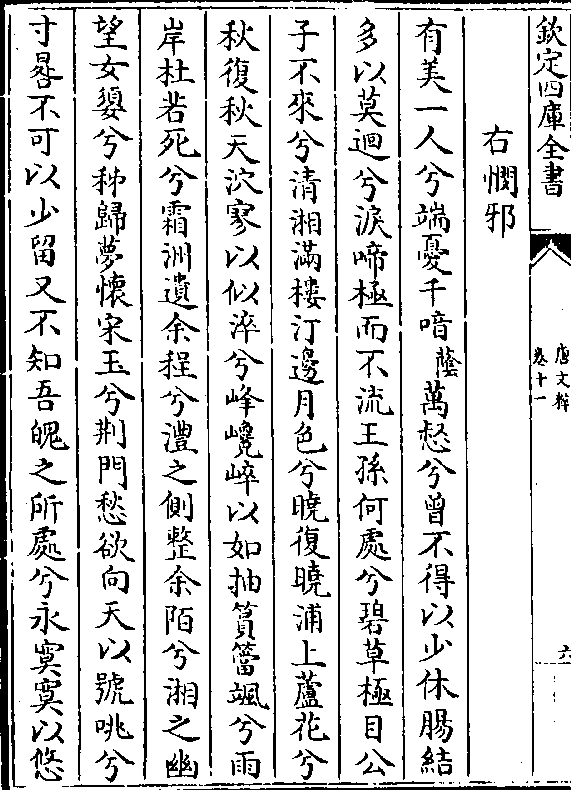 欽定四庫全書
唐文粹
卷十一
六
右憫邪
有美一人兮端憂千喑蔭萬愁兮曾不得以少休腸結
多以莫迴兮淚啼極而不流王孫何處兮碧草極目公
子不來兮清湘滿樓汀邊月色兮曉復曉浦上蘆花兮
秋復秋天泬寥以似淬兮峰巉崪以如抽篔簹颯兮雨
岸杜若死兮霜洲遺余程兮澧之側整余陌兮湘之幽
望女嬃兮秭歸夢懷宋玉兮荆門愁欲向天以號咷兮
寸晷不可以少留又不知吾魄之所處兮永寞寞以悠